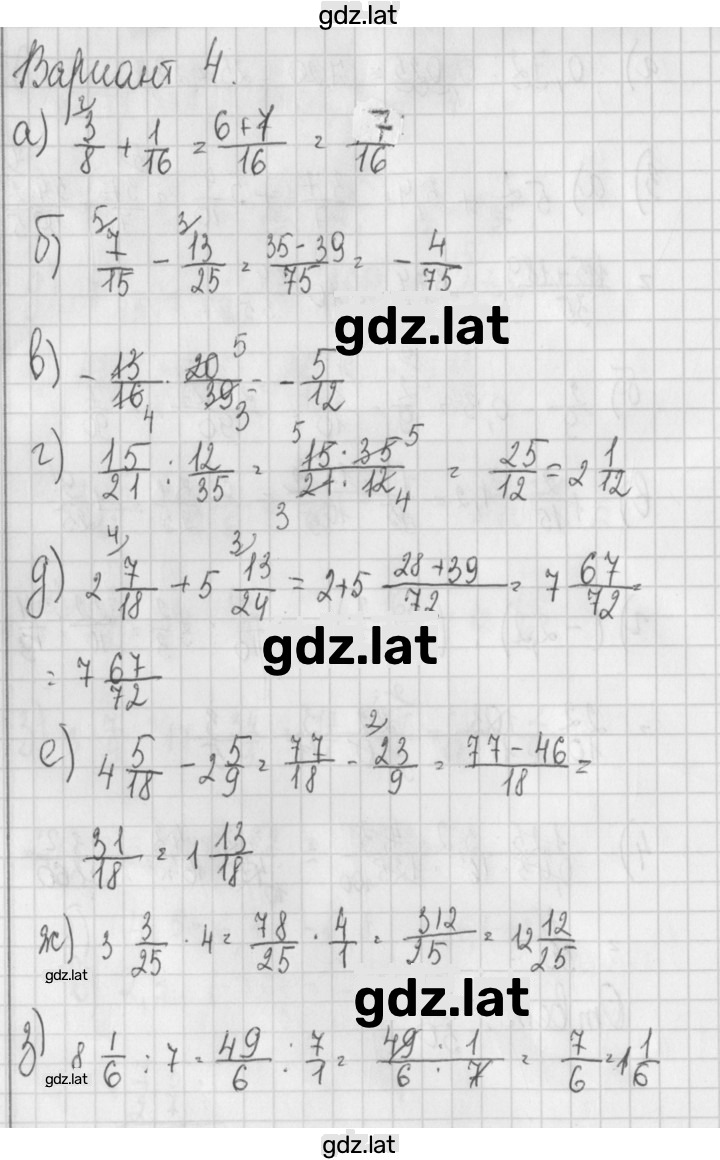 gdz.lat
Вариант 4.
а) 3/8 + 1/16 = (6+7)/16 = 7/16
б) 7/15 - 13/25 = (35-39)/75 = -4/75
gdz.lat
в) -13/16 · 20/39 = -5/12
г) 15/21 : 12/35 = (15·35)/(21·12) = 25/12 = 2 1/12
д) 2 7/18 + 5 13/24 = 2+5 (28+39)/72 = 7 67/72 =
gdz.lat
= 7 67/72
е) 4 5/18 - 2 5/9 = 77/18 - 23/9 = (77-46)/18 =
31/18 = 1 13/18
ж) 3 3/25 · 4 = 78/25 · 4/1 = 312/25 = 12 12/25
gdz.lat
gdz.lat
з) 8 1/6 : 7 = 49/6 : 7/1 = (49·1)/(6·7) = 7/6 = 1 1/6
gdz.lat
gdz.lat